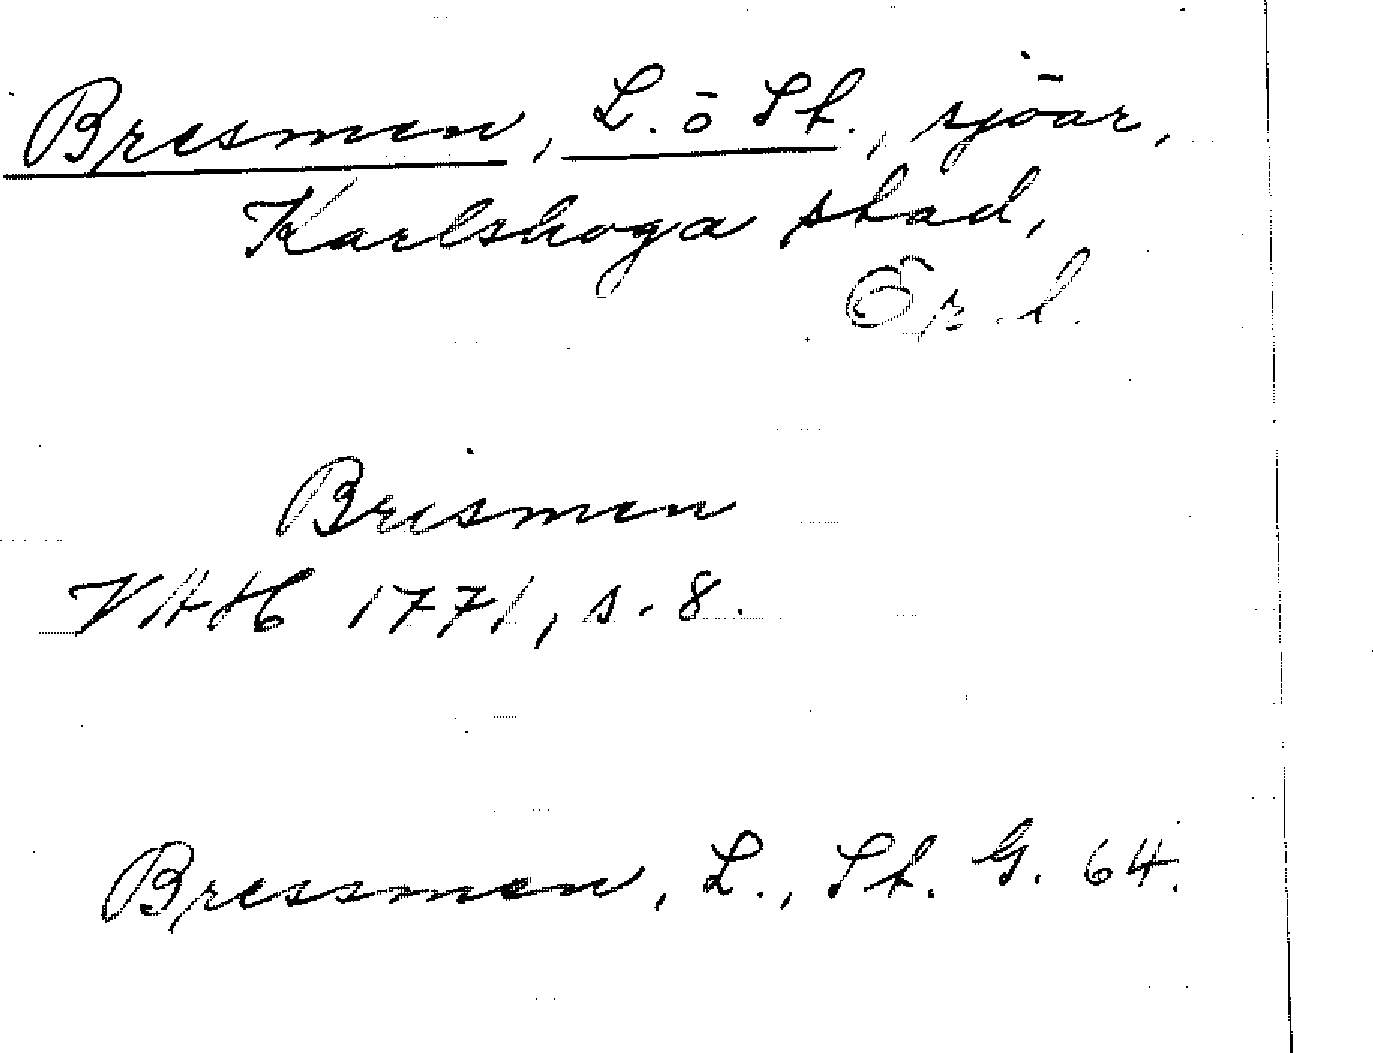 Bresmen, L. ō St., sjöar,
Karlskoga stad,
Ör. l.
Brismen
VAH 1771, s. 8.
Bressmen, L., St. G. 64.